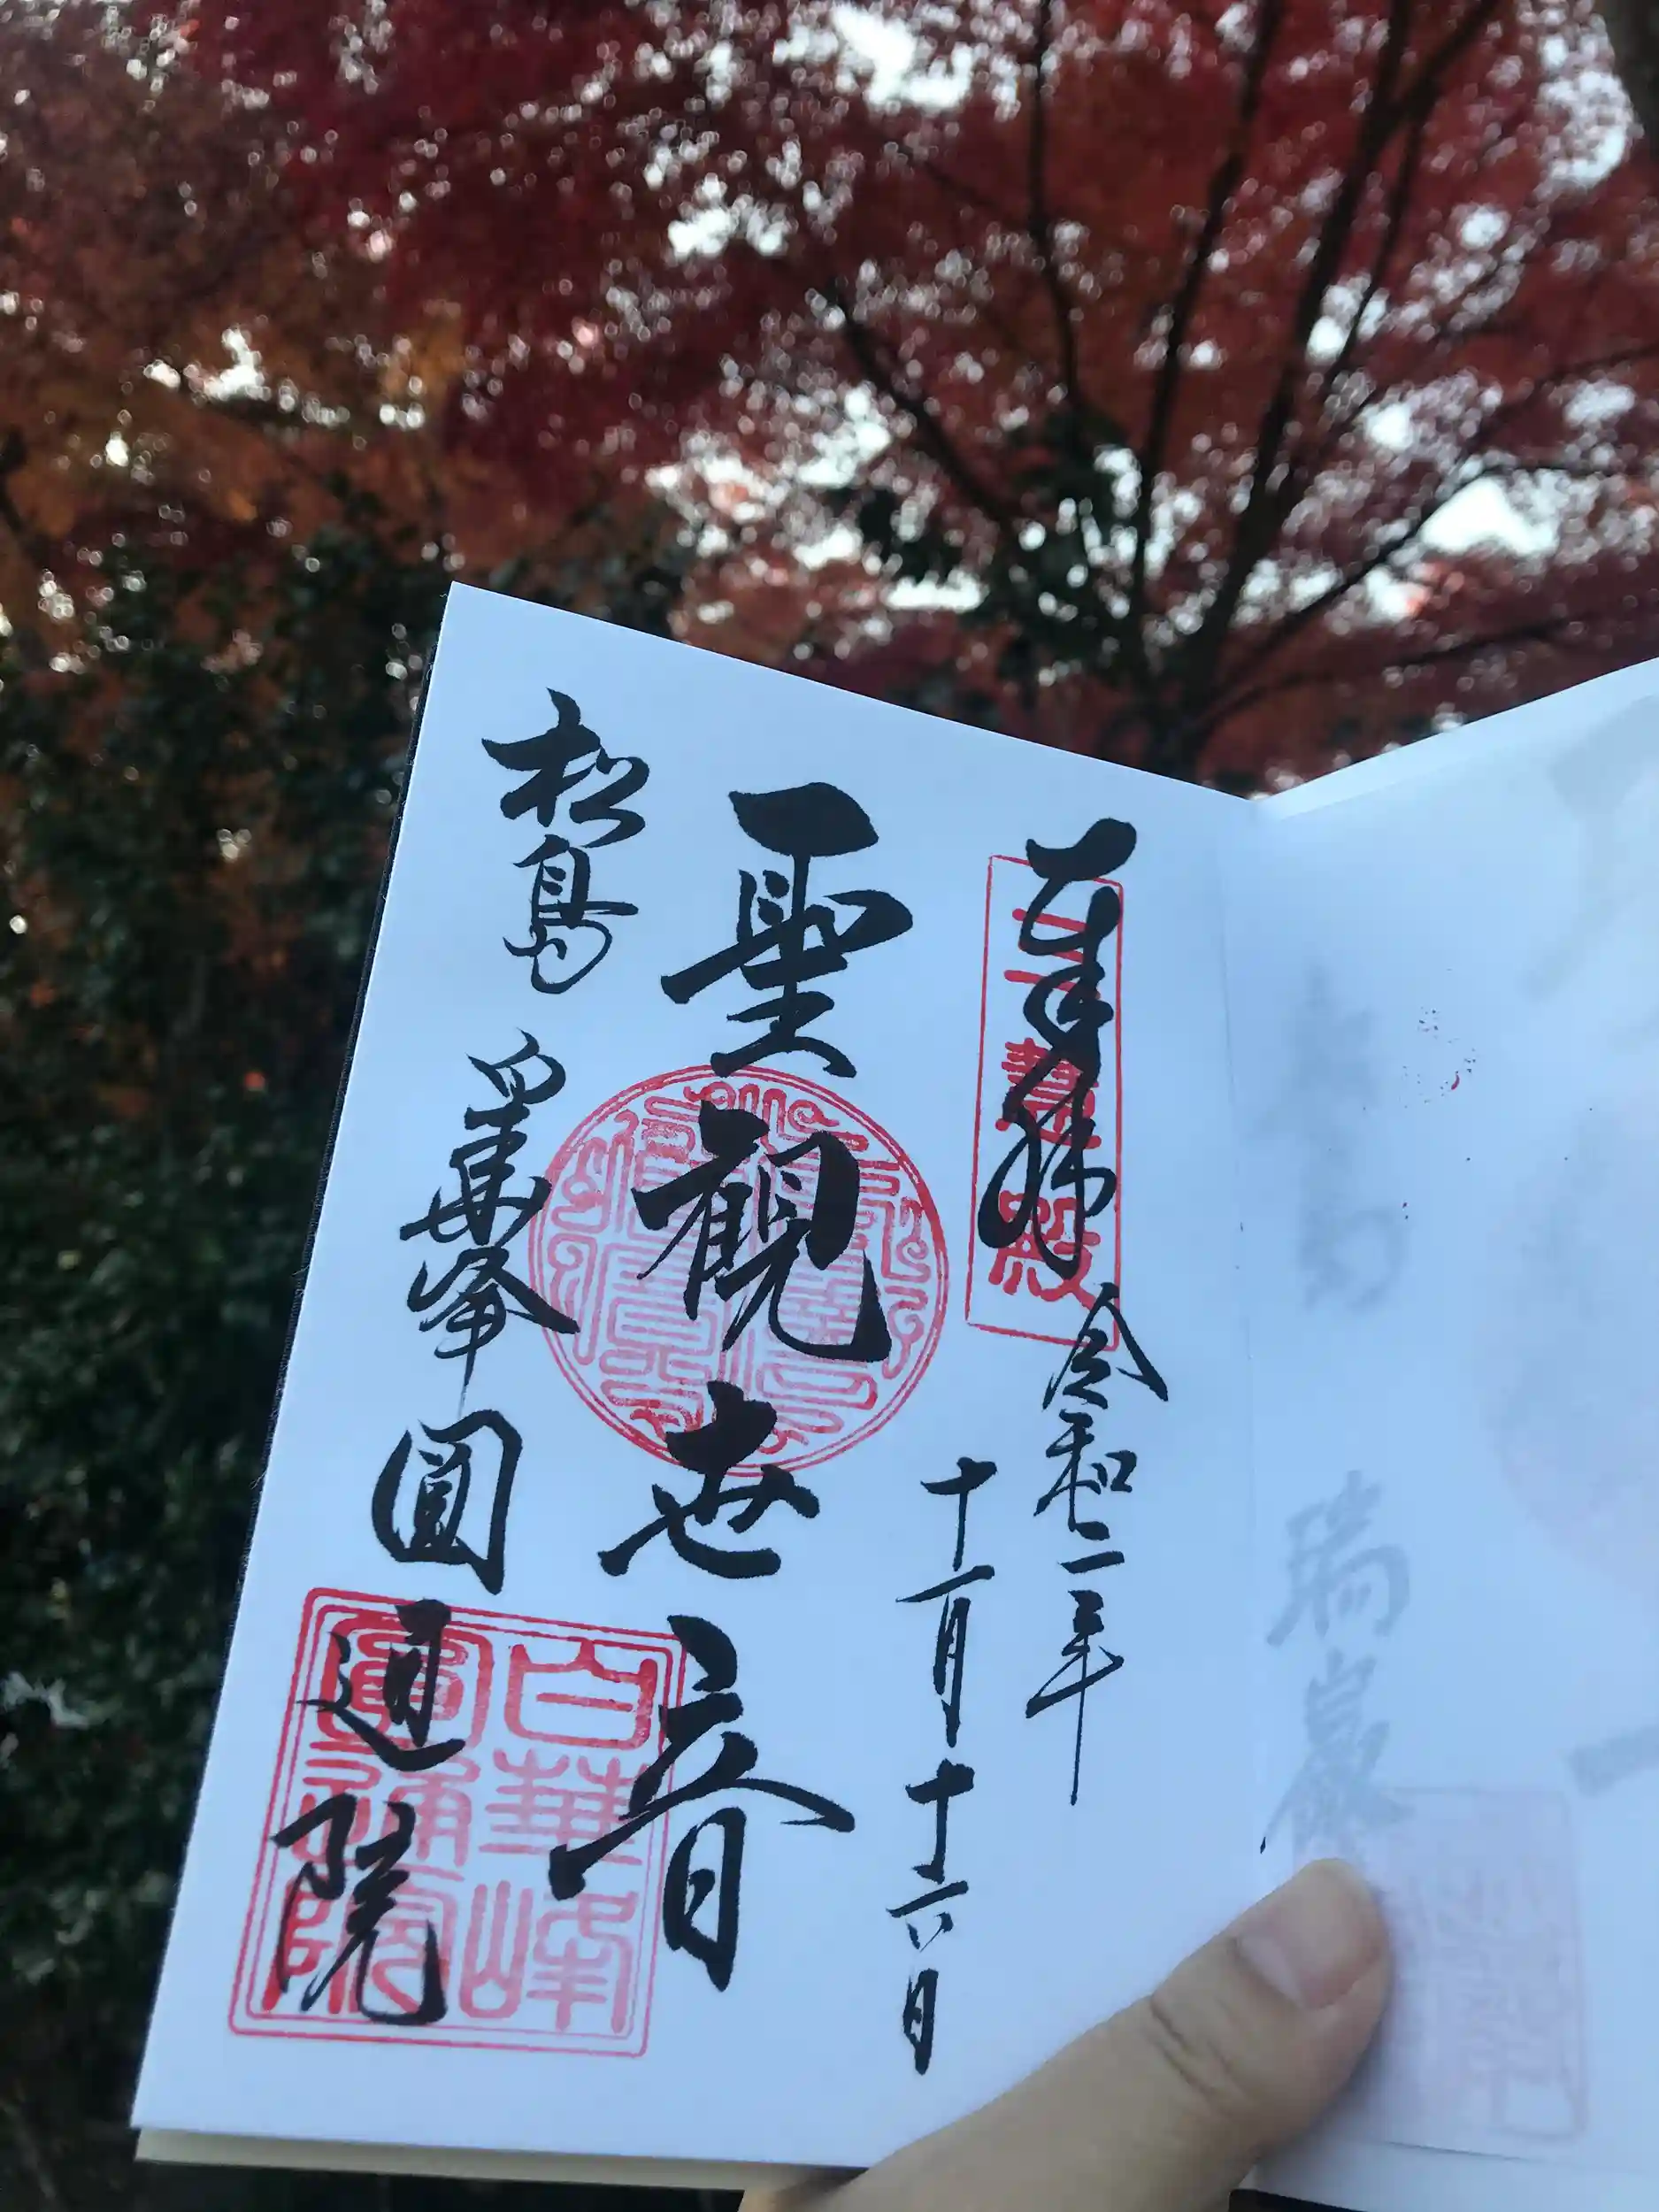 奉拝
三慧殿
令和二年
十一月十六日
聖観世音
松島 白華峰 圓通院
白華峰
圓通院
瑞巌